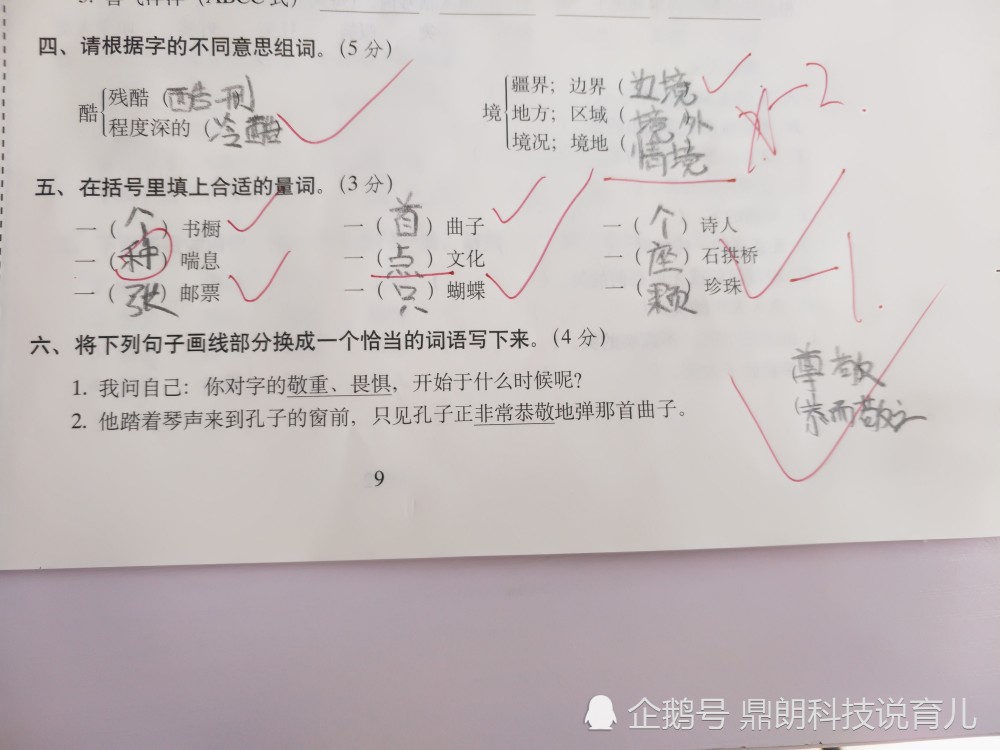 四、请根据字的不同意思组词。(5 分)
酷 残酷 (酷刑
程度深的 (冷酷
境 疆界；边界 (边境
地方；区域 (境外
境况；境地 (情境
-2.
五、在括号里填上合适的量词。(3 分)
一 (个) 书橱 一 (首) 曲子 一 (个) 诗人
一 (种) 喘息 一 (点) 文化 一 (座) 石拱桥
一 (张) 邮票 一 (只) 蝴蝶 一 (颗) 珍珠
-1.
六、将下列句子画线部分换成一个恰当的词语写下来。(4 分)
1. 我问自己：你对字的敬重、畏惧，开始于什么时候呢？ 尊敬
2. 他踏着琴声来到孔子的窗前，只见孔子正非常恭敬地弹那首曲子。 (恭而敬之
9
企鹅号 鼎朗科技说育儿